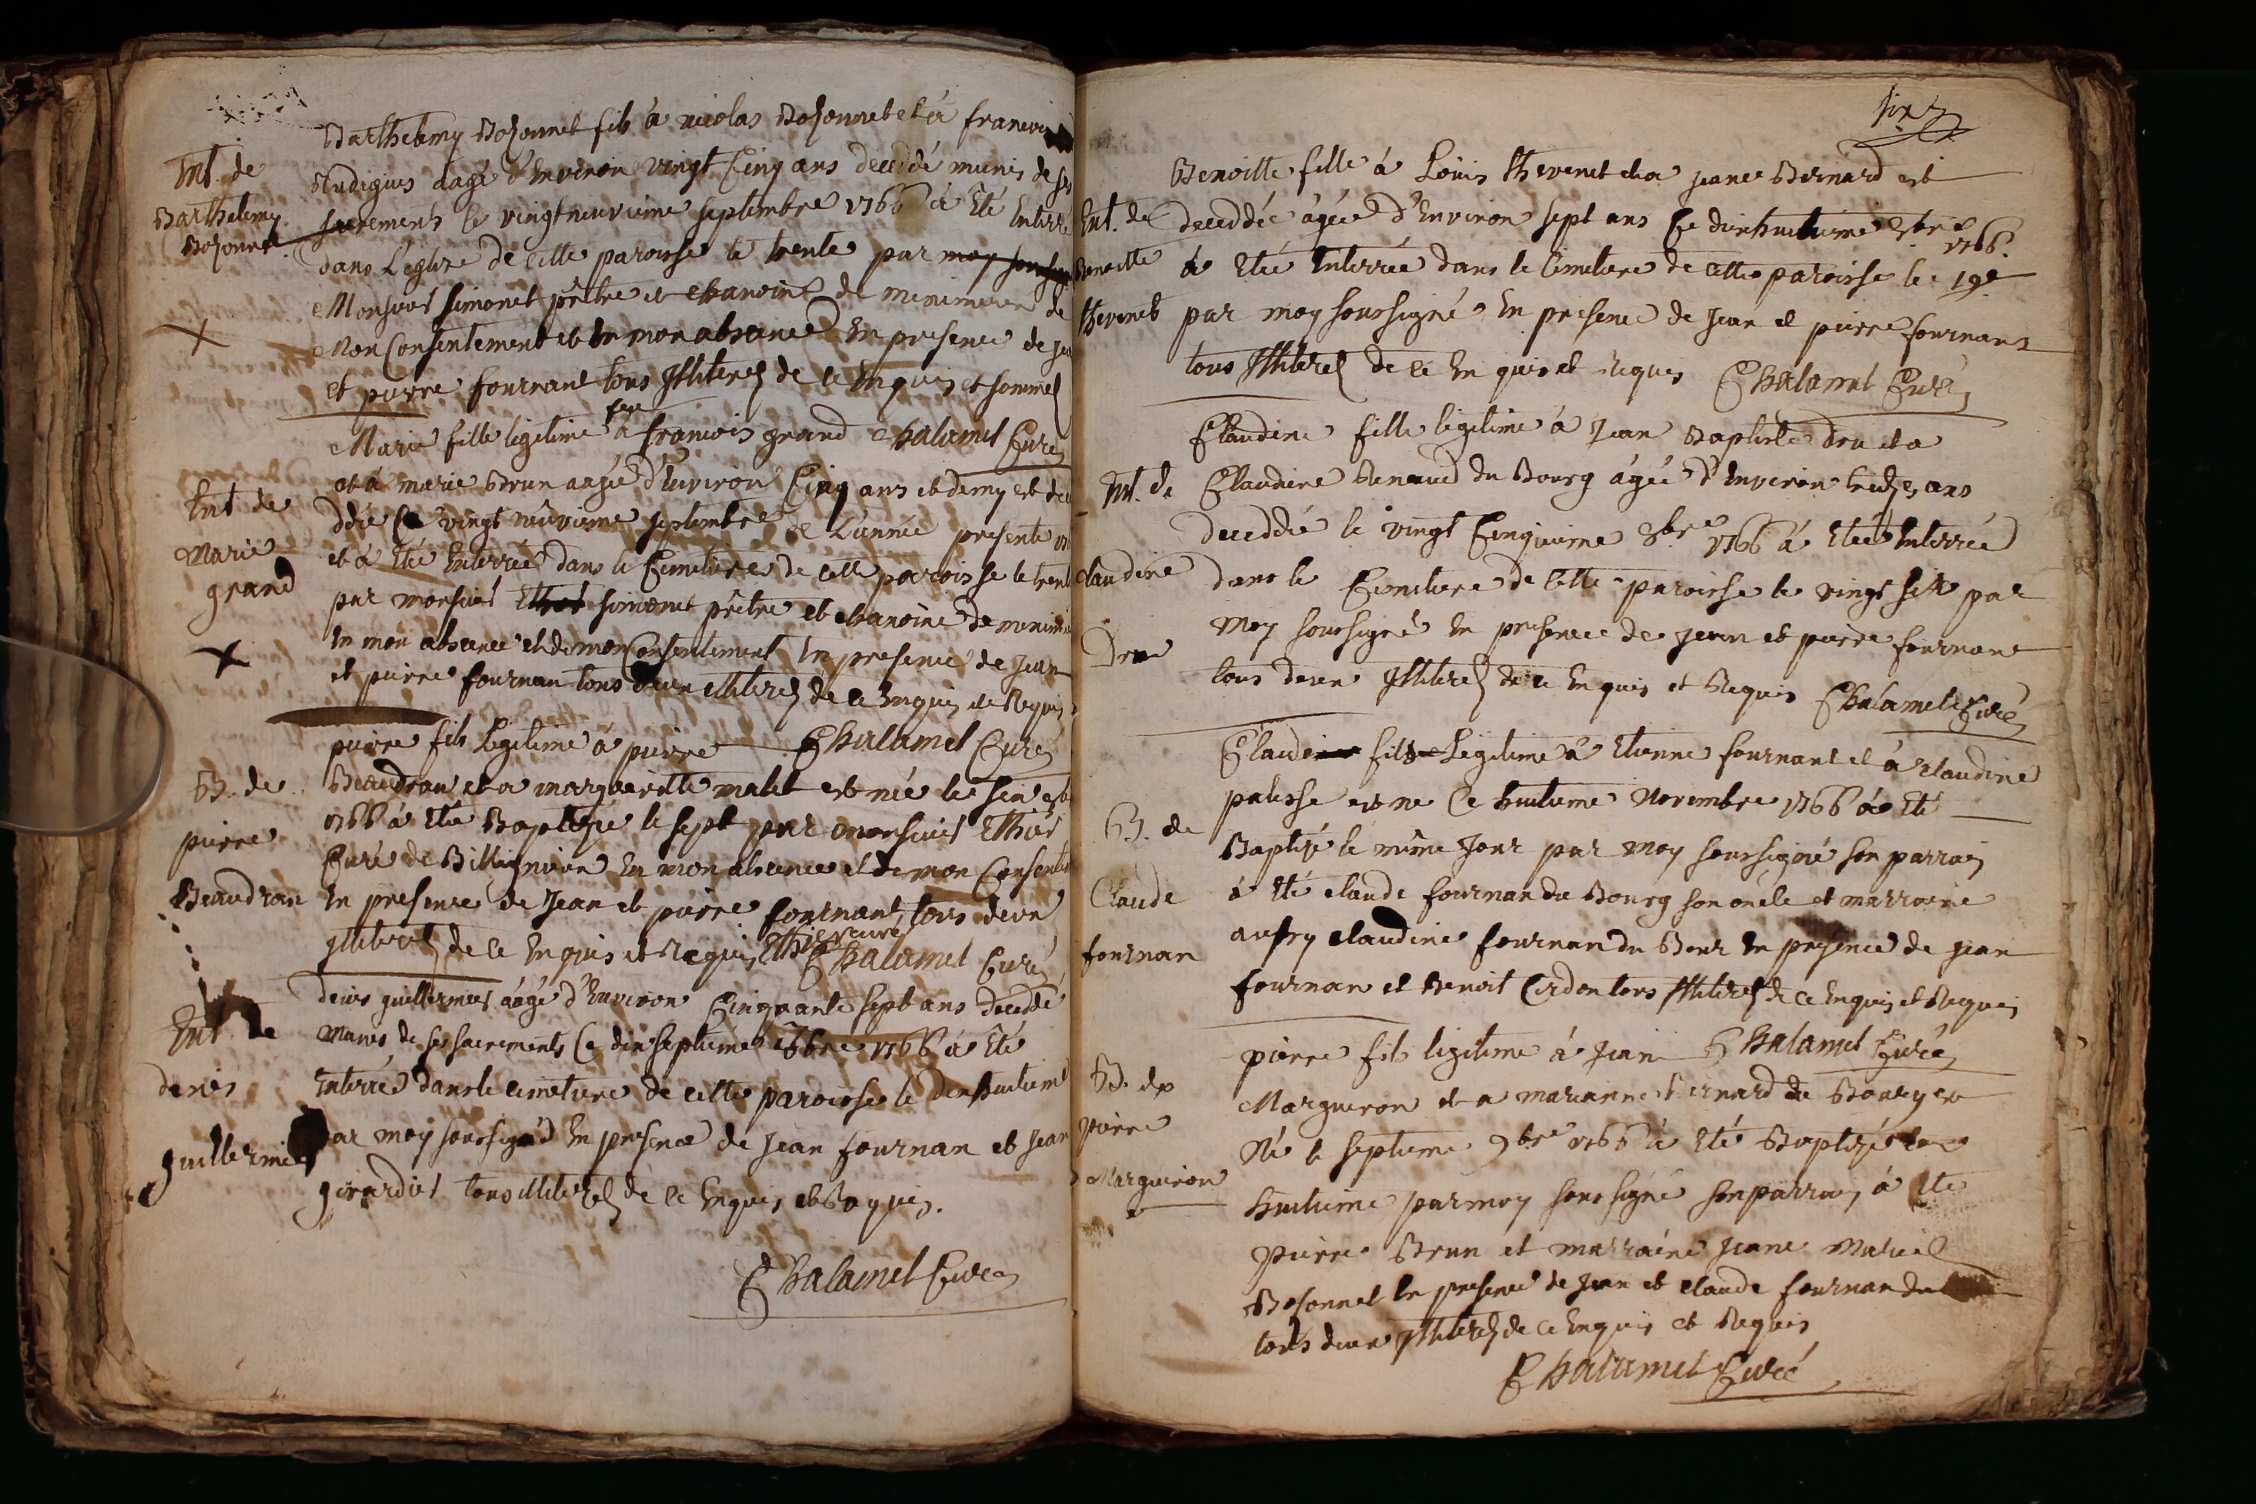 Int. de
Barthelemy
Bozonnet
Barthelemy Bozonnet fils à nicolas Bozonnet et à
Audigius aagé d'Environ vingt Cinq ans deceddé munis de ses
sacrements le vingt neuvieme septembre 1766 à Eté Enterré
dans L'eglize de cette paroisse le trente par moy
Monsieur simonet prêtre et chanoine de de
Mon Consentement et En mon absence En presence de
et pierre fournant tous Illiterez de ce Enquis et sommez
Chalamel Curé
Ent de
Marie
grand
Marie fille legitime à feu francois grand
et à marie Brun aagée d'Environ Cinq ans et demy est
ddée Ce vingt neuvieme septembre de L'année presente
et à Eté Enterrée dans le Cimetiere de cette paroisse le
par monsieur simonet prêtre et chanoine de
En mon absence et de mon Consentement En presence de Jean
et pierre fournan tous deux illiterez de ce Enquis et Requis
Chalamel Curé
B. de
pierre
Beaudran
pierre fils Legitime à pierre
Beaudran et a margueritte malet est née le
1766 à Eté Baptizé le sept par monsieur
Curé de Billignieu En mon absence et de mon
En presence de Jean et pierre fournant, tous deux
Illiterez de ce Enquis et Requis
Chalamel Curé
Ent de
denis
guillermier
denis aagé d'Environ Cinquante sept ans deceddé
Munis de ses sacrements Ce dix septieme 8bre 1766 à Eté
Enterré dans le cimetiere de cette paroisse le dixhuitieme
par moy soussigné En presence de Jean fournan et Jean
tous illiterez de ce Enquis et Requis.
Chalamel Curé
six
Ent. de
Benoitte
thevenet
Benoitte fille à Loüis thevenet et a jeane Bernard est
deceddée âgée d'Environ sept ans Ce dixhuitieme 8bre 1766.
à Eteé Enterrée dans le Cimetiere de cette paroisse le 19e
par moy soussigné En presence de Jean et pierre fournant
tous Illiterez de ce Enquis et Requis Chalamel Curé
Int. de
Claudine
Dru
Claudine fille legitime à Jean Baptiste dru et a
Claudine Renaud du Bourg âgée d'Environ ans
deceddée le vingt Cinquieme 8bre 1766 à Eteé Enterrée
dans le Cimetiere de cette paroisse le vingt par
moy soussigné En presence de Jean et pierre fournant
tous deux Illiterez de ce Enquis et Requis Chalamel Curé
B. de
Claude
fournan
fils Legitime à Etienne fournant et à claudine
palisse est né Ce huitieme Novembre 1766 à Eté
Baptizé le même Jour par moy soussigné son parrain
à Eté claude fournan du Bourg son oncle et marraine
claudine fournan du Bour En presence de jean
fournan et Benoit Cirdon tous Illiterez de ce Enquis et Requis
Chalamel Curé
B. de
pierre
Margueron
pierre fils legitime à Jean
Margueron et a marianne Bernard du Bourg est
Né le septieme 9bre 1766 à Eté Baptizé
huitieme par moy sous signé son parrain à Eté
pierre Brun et marraine Jeane
Bozonnet En presence de Jean et claude fournan du
tous deux Illiterez de ce Enquis et Requis
Chalamel Curé